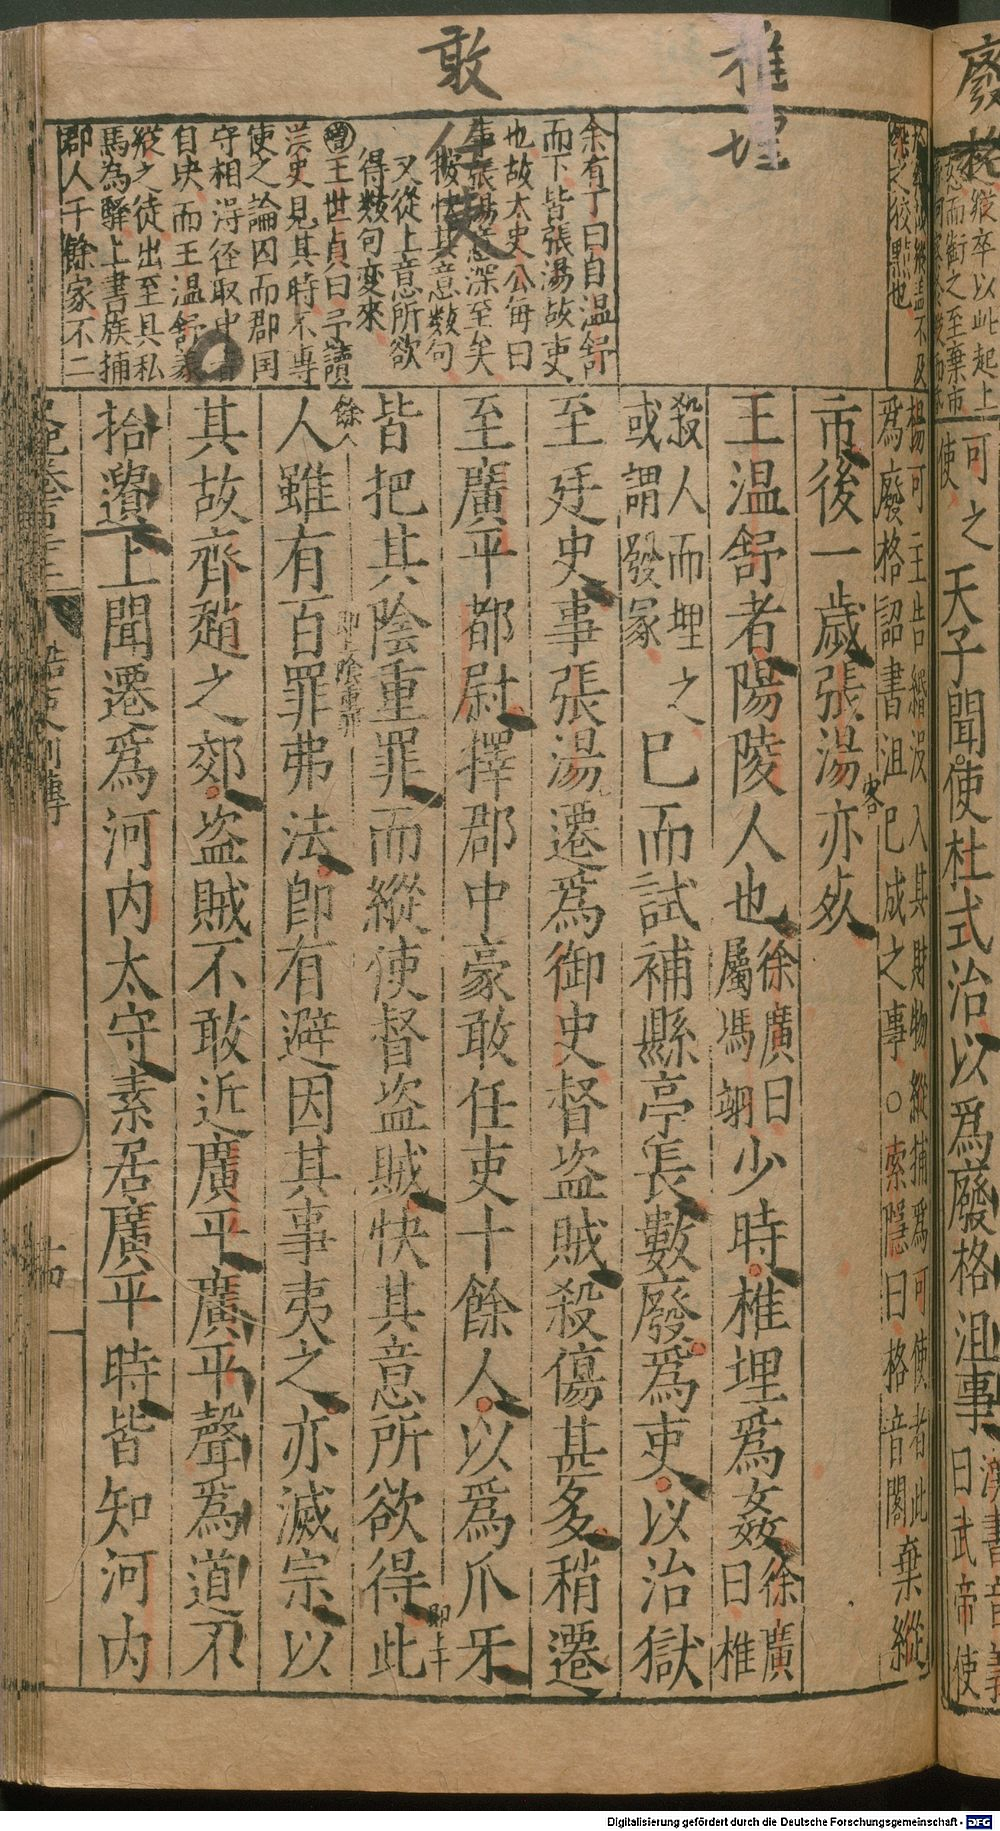 廢格
可之 天子聞使杜式治以爲廢格沮事 漢書音義
使 曰武帝使
楊可主告緡没入其財物縱捕爲可使者此
爲廢格詔書沮已成之事〇索隱曰格音閣 棄縱
市後一歲張湯亦死
王温舒者陽陵人也 徐廣曰
屬馮翊 少時椎埋爲姦 徐廣
曰椎
殺人而埋之
或謂發冢 已而試補縣亭長數廢爲吏以治獄
至廷史事張湯遷爲御史督盜賊殺傷甚多稍遷
至廣平都尉擇郡中豪敢任吏十餘人以爲爪牙
皆把其陰重罪而縱使督盜賊快其意所欲得此
人雖有百罪弗法即有避因其事夷之亦滅宗以
其故齊趙之郊盜賊不敢近廣平廣平聲爲道不
拾遺上聞遷爲河内太守素居廣平時皆知河内
椎埋
敢任吏
余有丁曰自温舒
而下皆張湯故吏
也故太史公每曰
事張湯意深至矣
按快其意數句
又從上意所欲
得數句变來
增王世貞曰予讀
漢史見其時不專
使之論囚而郡国
守相得径取中旨
自决而王温舒義
縱之徒出至具私
馬為驛上書族捕
郡人千餘家不二
餘人
即上陰重罪
即上十
客
酷吏列傳
十四
Digitalisierung gefördert durch die Deutsche Forschungsgemeinschaft - DFG